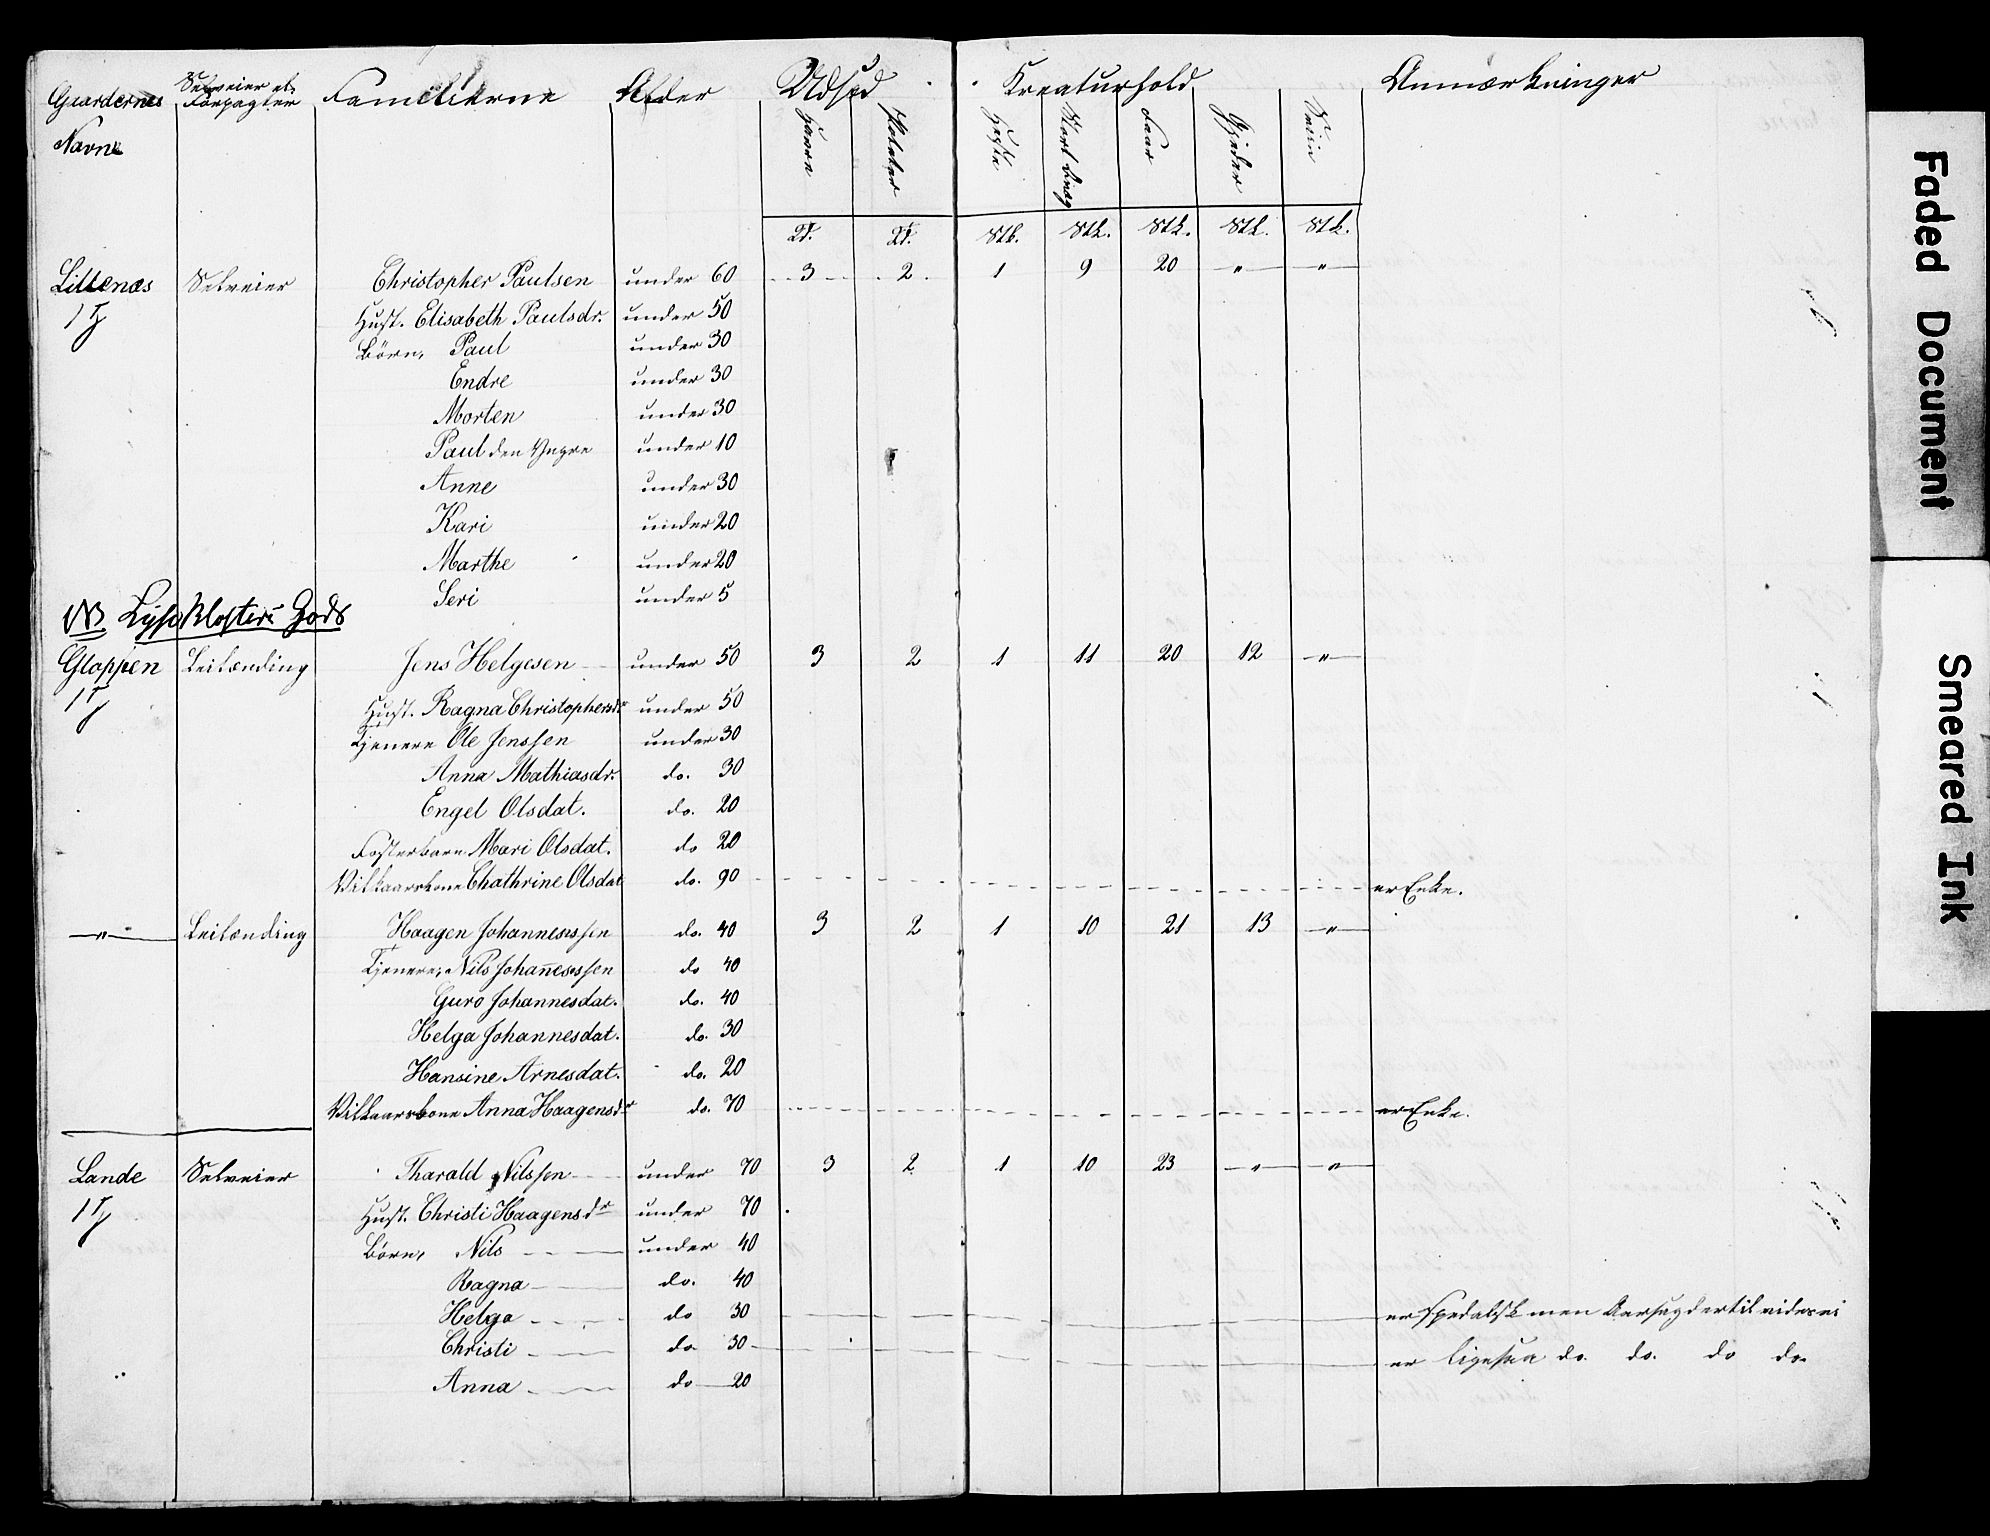 Gaardernes Selveier el. Familierne Alder Udsæd Kreaturhold Anmærkninger
Navne Forpagter
Havre Poteter Heste Stort Qvæg Faar Gjeder Sviin
Tr. Tr. Stk. Stk. Stk. Stk. Stk.
Littenæs Selveier Christopher Paulsen under 60 3 2 1 9 20 " "
Hust. Elisabeth Paulsdr. under 50
Börn, Paul under 30
Endre under 30
Morten under 30
Paul den Yngre under 10
Anne under 30
Kari under 20
Marthe under 20
Seri under 5
NB Lyseklosters Gods
Gloppen Leilænding Jens Helgesen under 50 3 2 1 11 20 12 "
Hust. Ragna Christophersdr under 50
Tjenere Ole Jenssen under 30
Anna Mathiasdr. do. 30
Engel Olsdat. do. 20
Fosterbarn Mari Olsdat. do 20
Vilkaarskone Chathrine Olsdat do. 90 er Enke.
" Leilænding Haagen Johannessen do. 40 3 2 1 10 21 13 "
Tjenere, Nils Johannessen do 40
Guro Johannesdat. do. 40
Helga Johannesdat. do. 30
Hansine Arnesdat. do. 20
Vilkaarskone Anna Haagensdr do. 70 er Enke.
Lande Selveier Tharald Nilssen under 70 3 2 1 10 23 " "
Hust. Christi Haagensdr under 70
Börn, Nils under 40
Ragna do. 40
Helga do 30 er spedalsk men Aarsag dertil vides ei
Christi do 30 er ligesaa do. do. do do.
Anna do 20
Faded Document
Smeared Ink